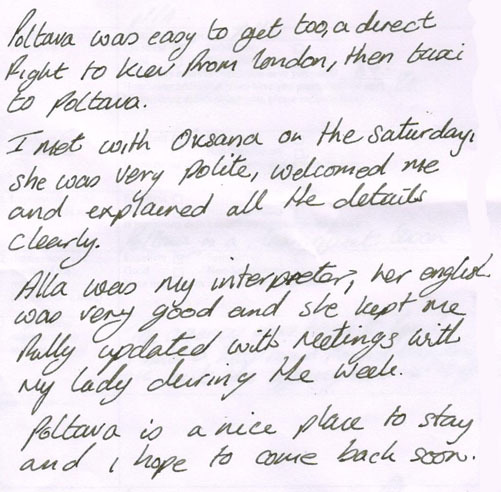 Poltava was easy to get too, a direct
flight to Kiev from london, then taxi
to Poltava.
I met with Oksana on the saturday,
she was very polite, welcomed me
and explained all the details
clearly.
Alla was my interpretor, her english
was very good and she kept me
fully updated with meetings with
my lady during the week.
Poltava is a nice place to stay
and i hope to come back soon.